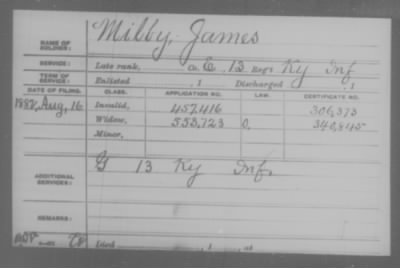 NAME OF SOLDIER: Milby, James
SERVICE: Late rank, Co. E, 13 Reg't Ky Inf
TERM OF SERVICE: Enlisted , 1 Discharged , 1
DATE OF FILING. CLASS. APPLICATION NO. LAW. CERTIFICATE NO.
1882, Aug, 16 Invalid, 457,416 306,373
Widow, 553,723 O, 340,845
Minor,
ADDITIONAL SERVICES: G 13 Ky Inf.
REMARKS:
Died , 1 , at